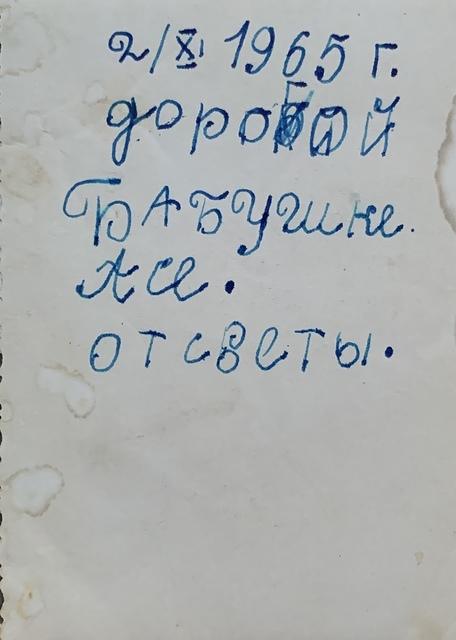 2/XI 1965 г.
дорогой
БАБУШке.
Асе.
от светы.